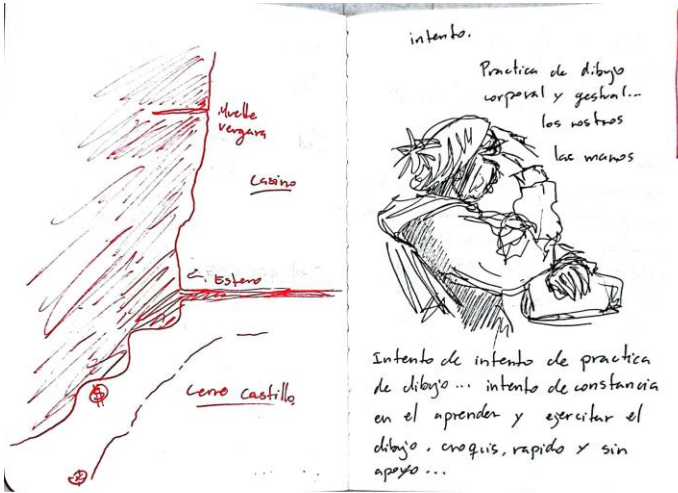 Muelle
vergara
Casino
Estero
Cerro Castillo
intento.
Practica de dibujo
corporal y gestual...
los rostros
las manos
Intento de intento de practica
de dibujo... intento de constancia
en el aprender y ejercitar el
dibujo, croquis, rapido y sin
apoyo...